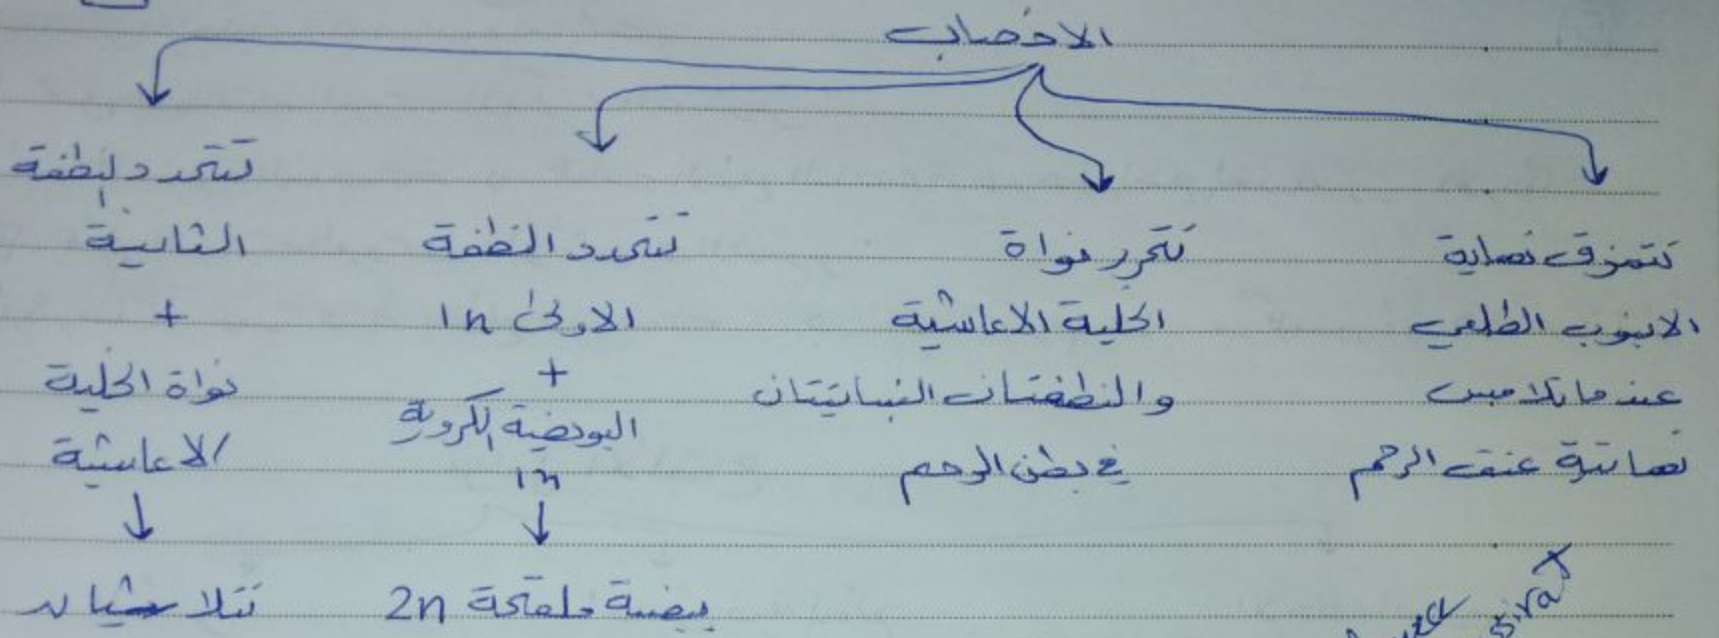 الاخصاب
تتمزق نهاية
الانبوب الطلعي
عندما تلامس
نهاية عنق الرحم
تتحرر نواة
الخلية الاعاشية
والنطفتان النباتيتان
في بطن الرحم
تتحد النطفة
الاولى 1n
+
البويضة الكروية
1n
↓
بيضة ملقحة 2n
تتحد النطفة
الثانية
+
نواة الخلية
الاعاشية
↓
تتلاشيان